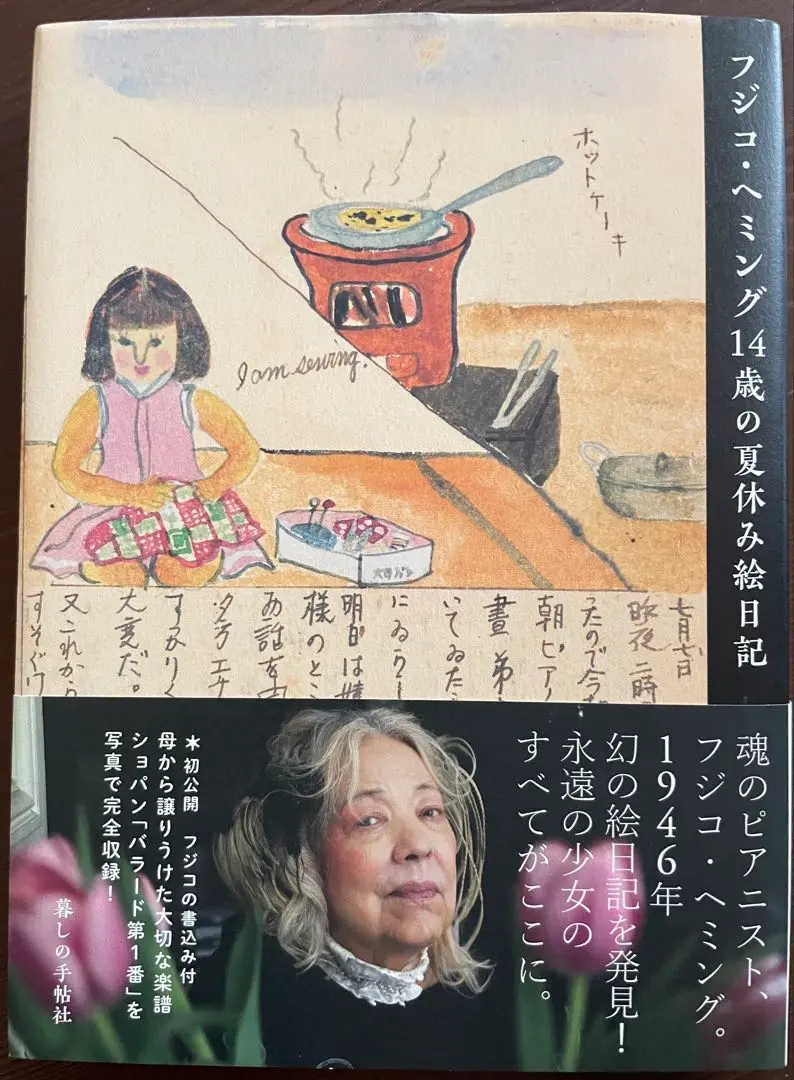 フジコ・ヘミング14歳の夏休み絵日記
ホットケーキ
I am sewing.
七月七日
昨夜二時
ったので今
朝ピアノ
晝 弟
いてゐた
にゐらし
明日は
様のとこ
お話を
夕方 エナ
すかりく
大変だ。
又これから
魂のピアニスト、
フジコ・ヘミング。
1946年
幻の絵日記を発見！
永遠の少女の
すべてがここに。
＊初公開 フジコの書込み付
母から譲りうけた大切な楽譜
ショパン「バラード第1番」を
写真で完全収録！
暮しの手帖社